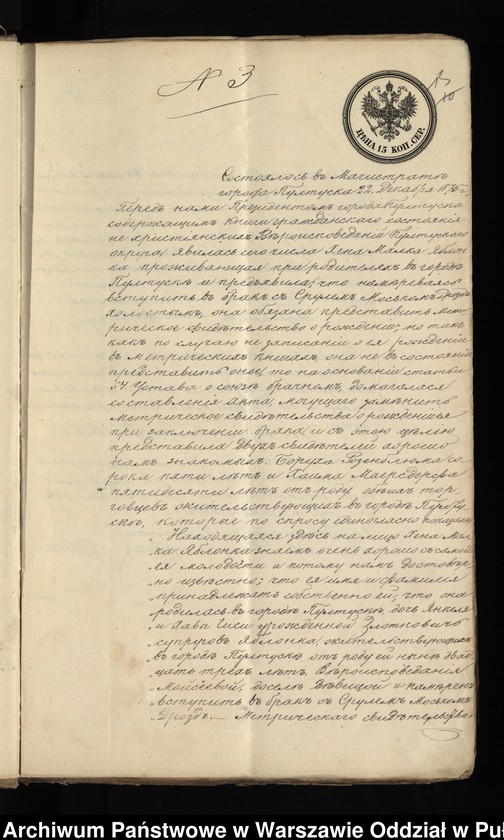 N 3
ЦѢНА 15 КОП. СЕР.
Состоялось въ Магистратѣ
города Пултуска 22 Декабря 1876 г.
Передъ нами Президентомъ города Пултуска
содержащимъ Книги гражданскаго состоянія
не христіянскихъ Вѣроисповѣданій Пултускаго
округа явилась сего числа Хена Малка Яблон
ка проживающая при родителяхъ въ городѣ
Пултускѣ и предъявила; что намѣреваясь
вступить въ бракъ съ Срулемъ Моськомъ Дроздъ
холостымъ, она обязана представить Мет
рическое свидѣтельство о рожденіи; но такъ
какъ по случаю не записанія о ея рожденіи
въ метрическихъ книгахъ, она не въ состояніи
представить оное, то на основаніи статьи
54 Устава о союзѣ брачномъ, домагалася
составленія акта, могущаго замѣнить
метрическое свидѣтельство о рожденіи ея
при заключеніи брака и съ этою цѣлею
представила двухъ свидѣтелей хорошо
намъ знакомыхъ: Боруха Розенблюма со
рока пяти лѣтъ и Хаима Маерсдорфа
пятидесяти лѣтъ отъ роду обоихъ тор
говцевъ жительствующихъ въ городѣ Пулту
скѣ, которые по спросу единогласно показали
Находящаяся здѣсь на лицо Хена Мал
ка Яблонка знаемъ очень хорошо съ самой
ея молодости и потому намъ достовѣр
но извѣстно; что ея имя и фамилія
принадлежатъ собственно ей; что она
родилась въ городѣ Пултускѣ, дочь Янкеля
и Хавы Гиси урожденной Злотковичъ
супруговъ Яблонка, жительствующихъ
въ городѣ Пултускѣ, отъ роду ей нынѣ двад
цать трехъ лѣтъ, Вѣроисповѣданія
Мойсеевой, доселѣ дѣвицой и намѣрена
вступить въ бракъ съ Срулемъ Моськомъ
Дроздъ. — Метрическаго свидѣтельства
Archiwum Państwowe w Warszawie Oddział w Pu